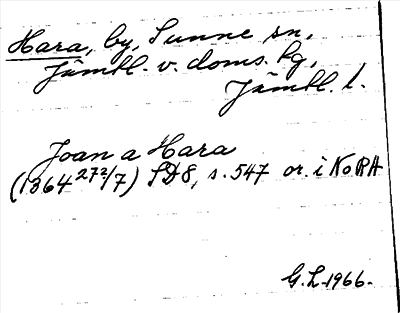 Hara, by, Sunne sn,
Jämtl. v. doms. hg,
Jämtl. l.
Joan a Hara
(1364 27 2/7) SD8, s. 547 or. i KoRA
G. L. 1966.